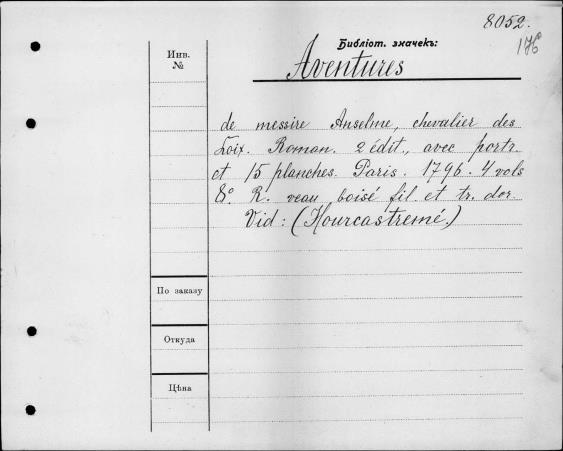 8052.
176
Библіот. значекъ:
Инв.
№
Aventures
de messire Anselme, chevalier des
Loix. Roman. 2 édit., avec portr.
et 15 planches. Paris. 1796. 4 vols
8°. R. veau boisé fil. et tr. dor.
Vid: (Hourcastremé.)
По заказу
Откуда
Цѣна